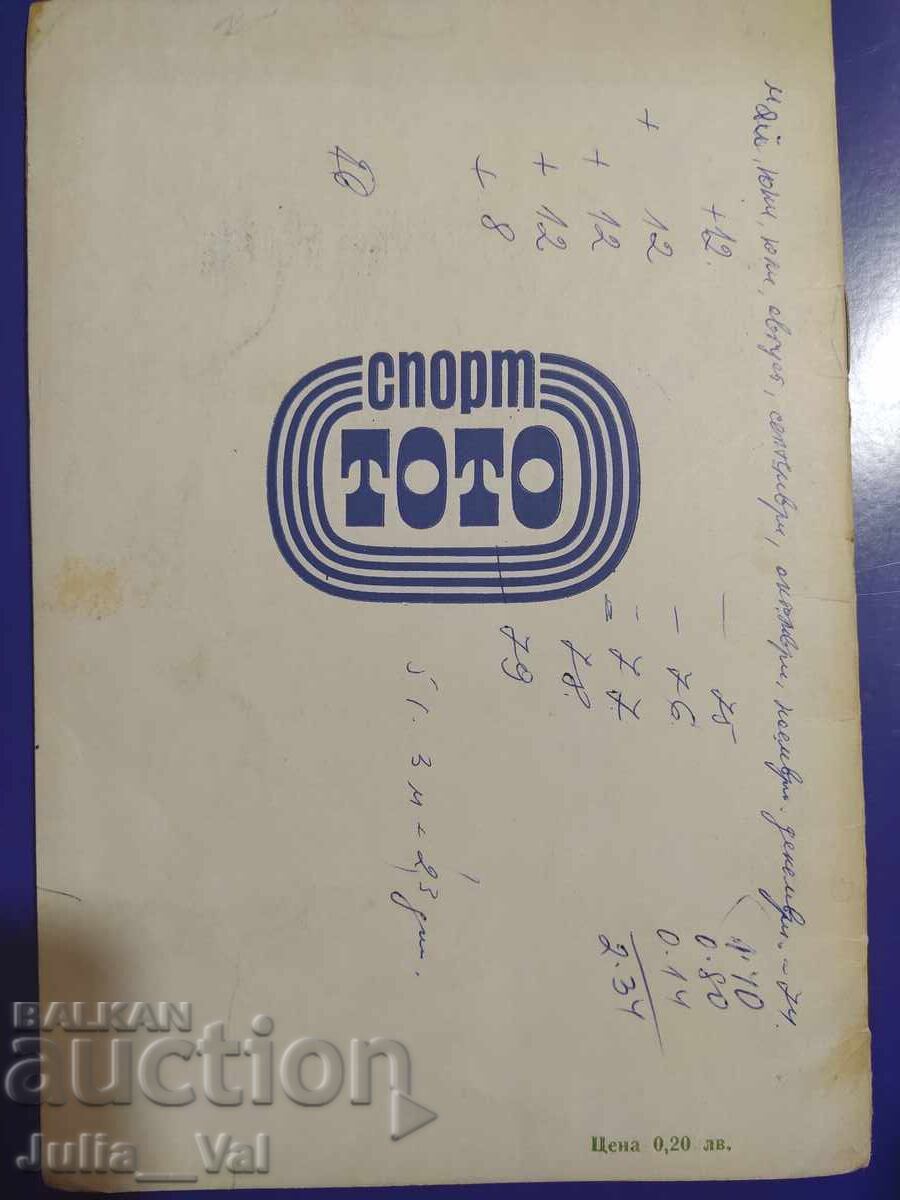 май, юни, юли, август, септември, октомври, ноември. декември. – 74.
+12. — 75
+ 12 – 76.
+ 12 = 77.
+ 12 78.
+ 8 79
5 г. 3 м + 23 дни.
1.40
0.80
0.14
2.34
спорт
ТОТО
Цена 0,20 лв.
BALKAN
auction
Julia__Val